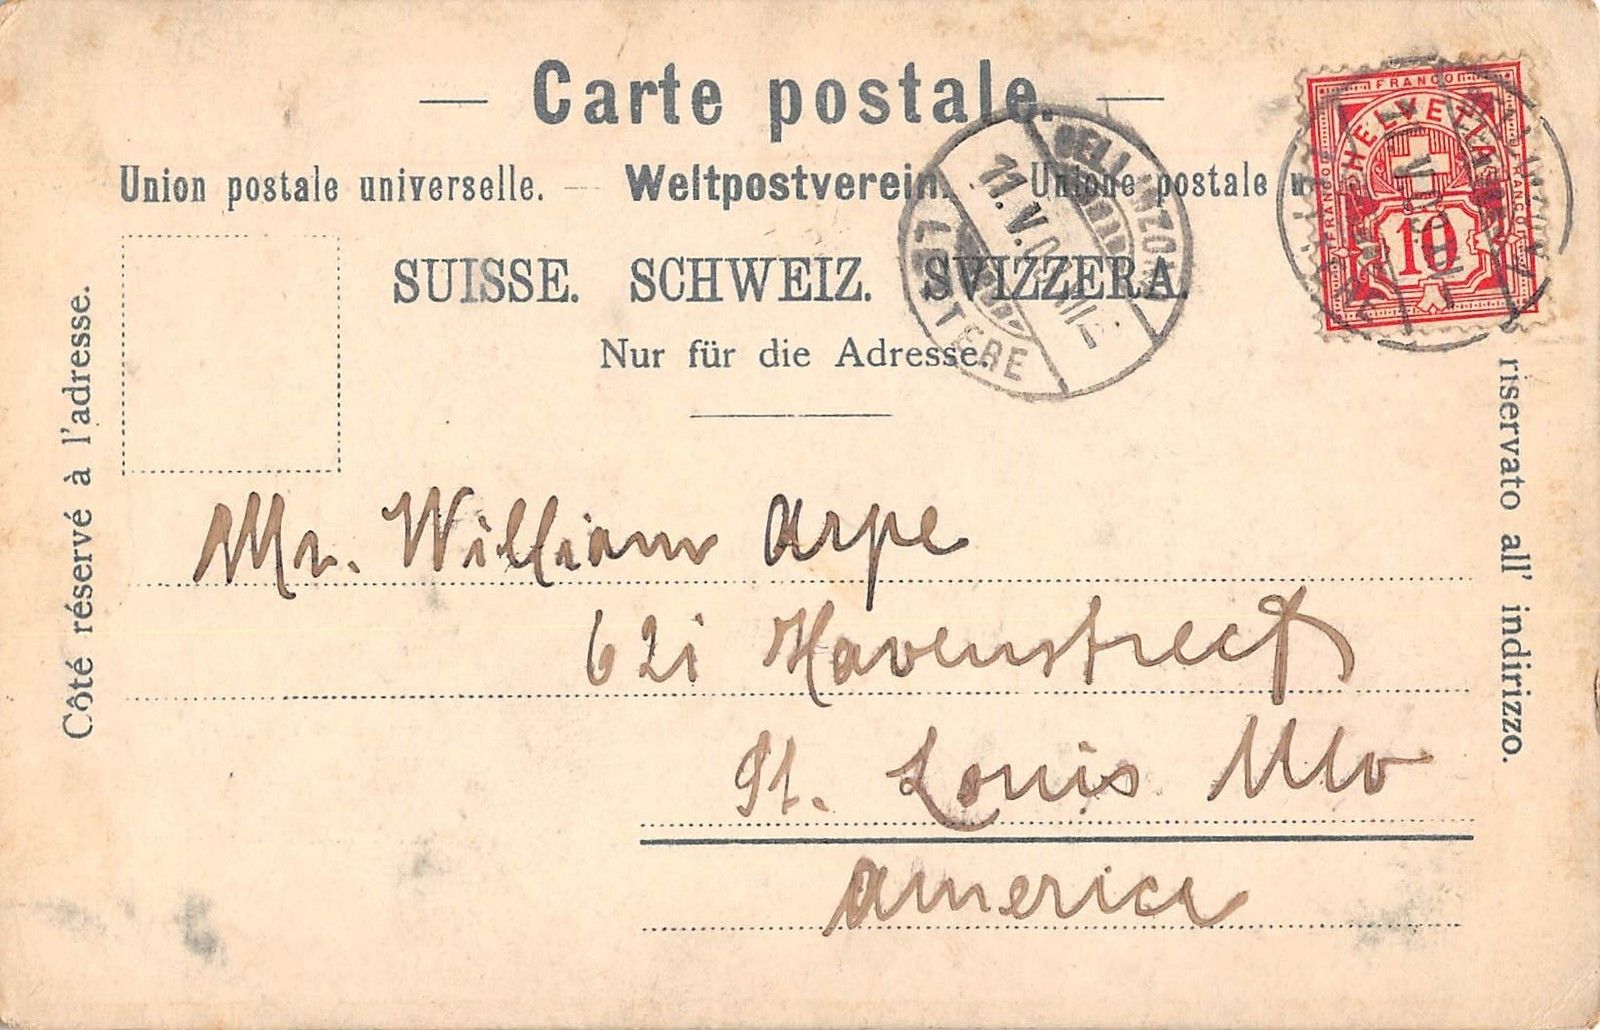 — Carte postale. —
Union postale universelle. — Weltpostverein. — Unione postale
SUISSE. SCHWEIZ. SVIZZERA.
Nur für die Adresse.
Côté réservé à l'adresse.
riservato all' indirizzo.
FRANCO
FRANCO
FRANCO
HELVETIA
10
BELLINZONA
11.V.
LETTERE
Mr. William Arpe
621 Havenstreet
St. Louis Mo
America